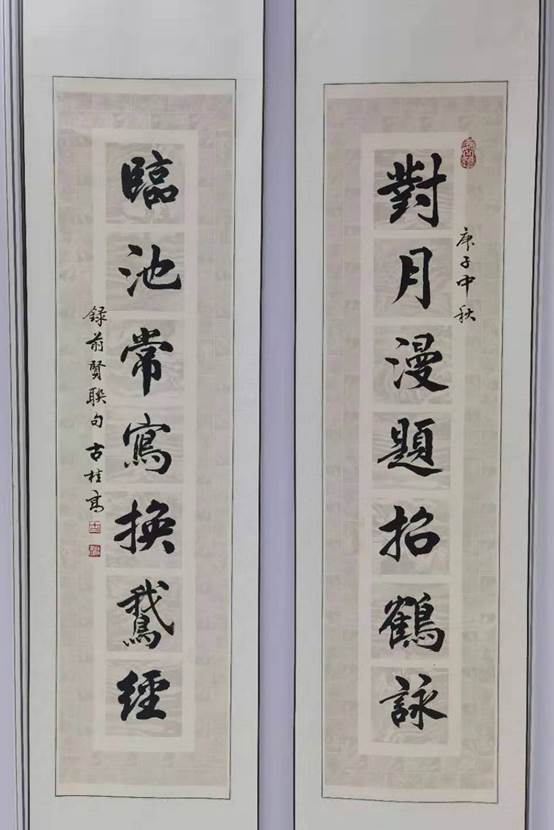 對月漫題招鶴詠
庚子中秋
臨池常寫換鵞經
錄前賢聯句古桂高